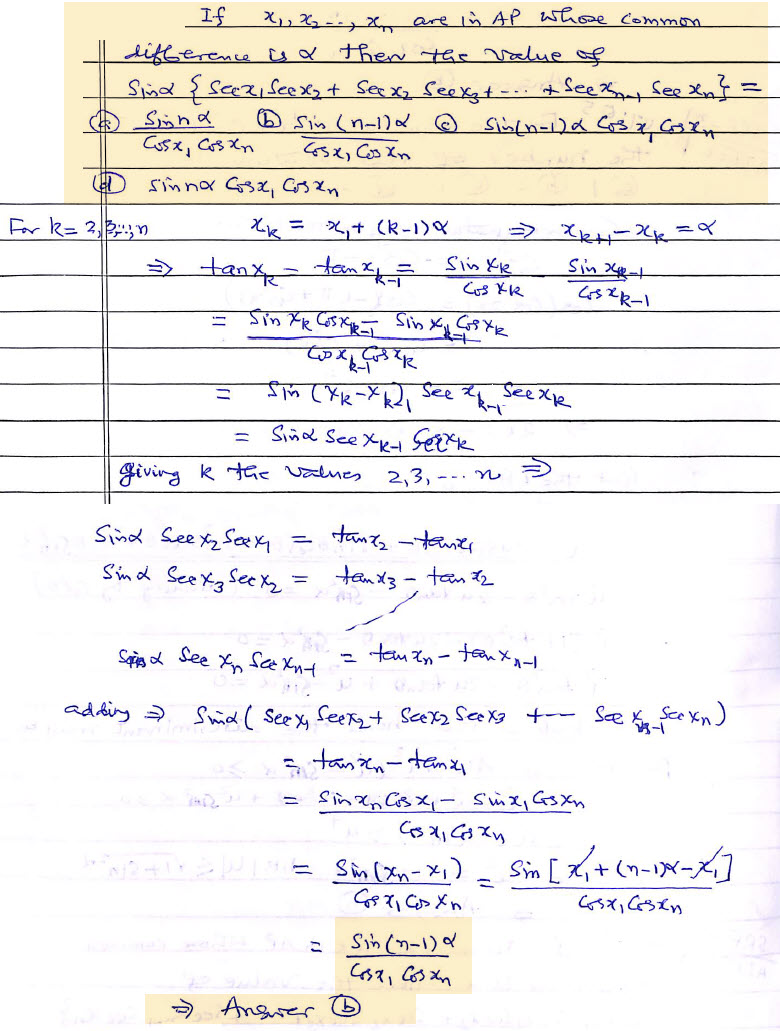 If x₁, x₂ --, xₙ are in AP whose common
difference is α then the value of
Sinα {Sec x₁ Sec x₂ + Sec x₂ Sec x₃ + --- + Sec xₙ₋₁ Sec xₙ} =
(a) Sin n α / Cos x₁ Cos xₙ (b) Sin (n-1)α / Cos x₁ Cos xₙ (c) Sin(n-1)α Cos x₁ Cos xₙ
(d) Sin nα Cos x₁ Cos xₙ
For k = 2,3,..,n xₖ = x₁ + (k-1)α ⇒ xₖ₊₁ - xₖ = α
⇒ tan xₖ - tan xₖ₋₁ = Sin xₖ / Cos xₖ - Sin xₖ₋₁ / Cos xₖ₋₁
= Sin xₖ Cos xₖ₋₁ - Sin xₖ₋₁ Cos xₖ / Cos xₖ₋₁ Cos xₖ
= Sin (xₖ - xₖ₋₁) Sec xₖ₋₁ Sec xₖ
= Sinα Sec xₖ₋₁ Sec xₖ
giving k the values 2,3, --- n ⇒
Sinα Sec x₂ Sec x₁ = tan x₂ - tan x₁
Sinα Sec x₃ Sec x₂ = tan x₃ - tan x₂
Sinα Sec xₙ Sec xₙ₋₁ = tan xₙ - tan xₙ₋₁
adding ⇒ Sinα (Sec x₁ Sec x₂ + Sec x₂ Sec x₃ + -- Sec xₙ₋₁ Sec xₙ)
= tan xₙ - tan x₁
= Sin xₙ Cos x₁ - Sin x₁ Cos xₙ / Cos x₁ Cos xₙ
= Sin (xₙ - x₁) / Cos x₁ Cos xₙ = Sin [x₁ + (n-1)α - x₁] / Cos x₁ Cos xₙ
= Sin (n-1) α / Cos x₁ Cos xₙ
⇒ Answer (b)